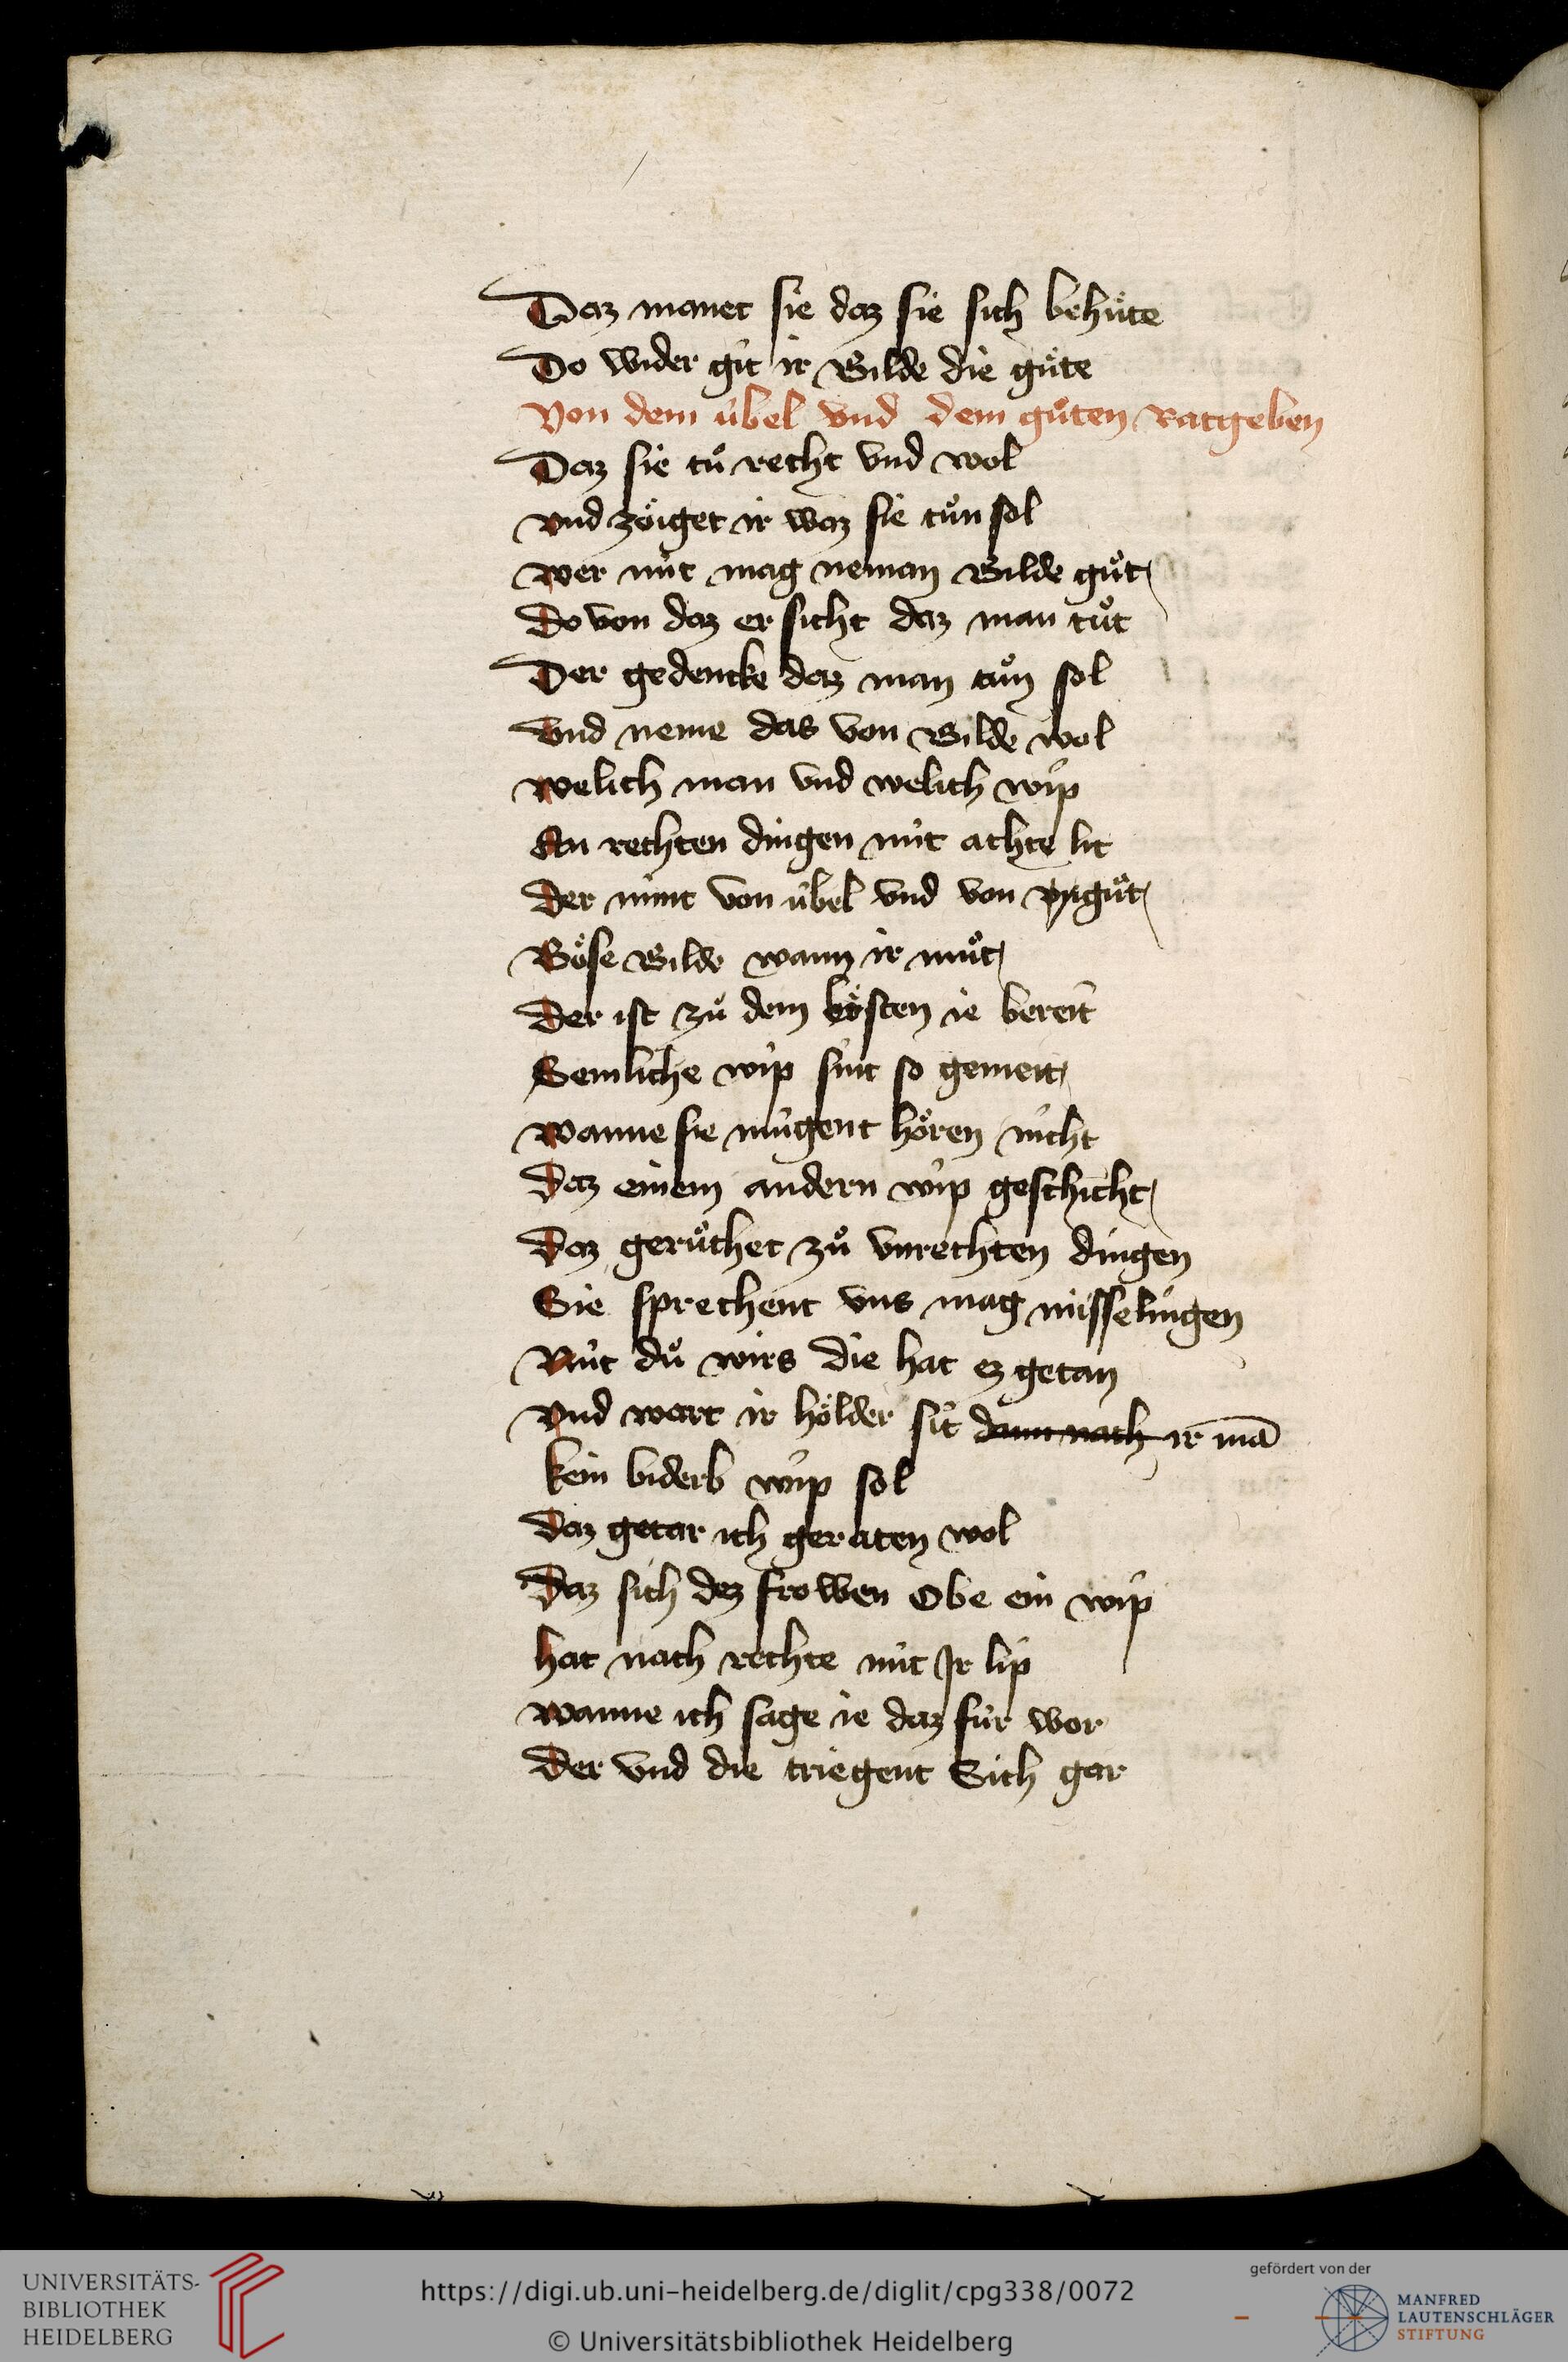 Daz manet sie daz sie sich behuͤte
Do wider git ir Bilde die guͤte
Von dem úbel vnd dem guͦten Ratgeben
Daz sie tuͦ recht vnd wol
vnd zoͤiget ir waz sie tuͦn sol
wer nit mag neman Bilde guͦt
Do von daz er sicht daz man tuͦt
Der gedencke daz man tuͦn sol
Vnd neme das von Bilde wol
welich man vnd welich wip
An rechten dingen nút achte lit
Der nimt von úbel vnd von vnguͦt
Boͤse Bilde wann ir muͦt
Der ist zuͦ dem boͤsten ie bereit
Semliche wip sint so gemeit
wanne sie múgent hoͤren nicht
Daz einem andern wip geschicht
Daz geruͦchet zuͦ vnrechten dingen
Sie sprechent vns mag misselingen
Nút duͦ wirs die hat ez getan
vnd wart ir hoͤlder sit dann nach ir mā
kein biderb wip sol
Daz getar ich geraten wol
Daz sich dez frowen Obe ein wip
hat nach rechte nút Jr lip
wanne ich sage ie daz fúr wor
Der vnd die triegent Sich gar
UNIVERSITÄTS-
BIBLIOTHEK
HEIDELBERG
https://digi.ub.uni-heidelberg.de/diglit/cpg338/0072
© Universitätsbibliothek Heidelberg
gefördert von der
MANFRED
LAUTENSCHLÄGER
STIFTUNG